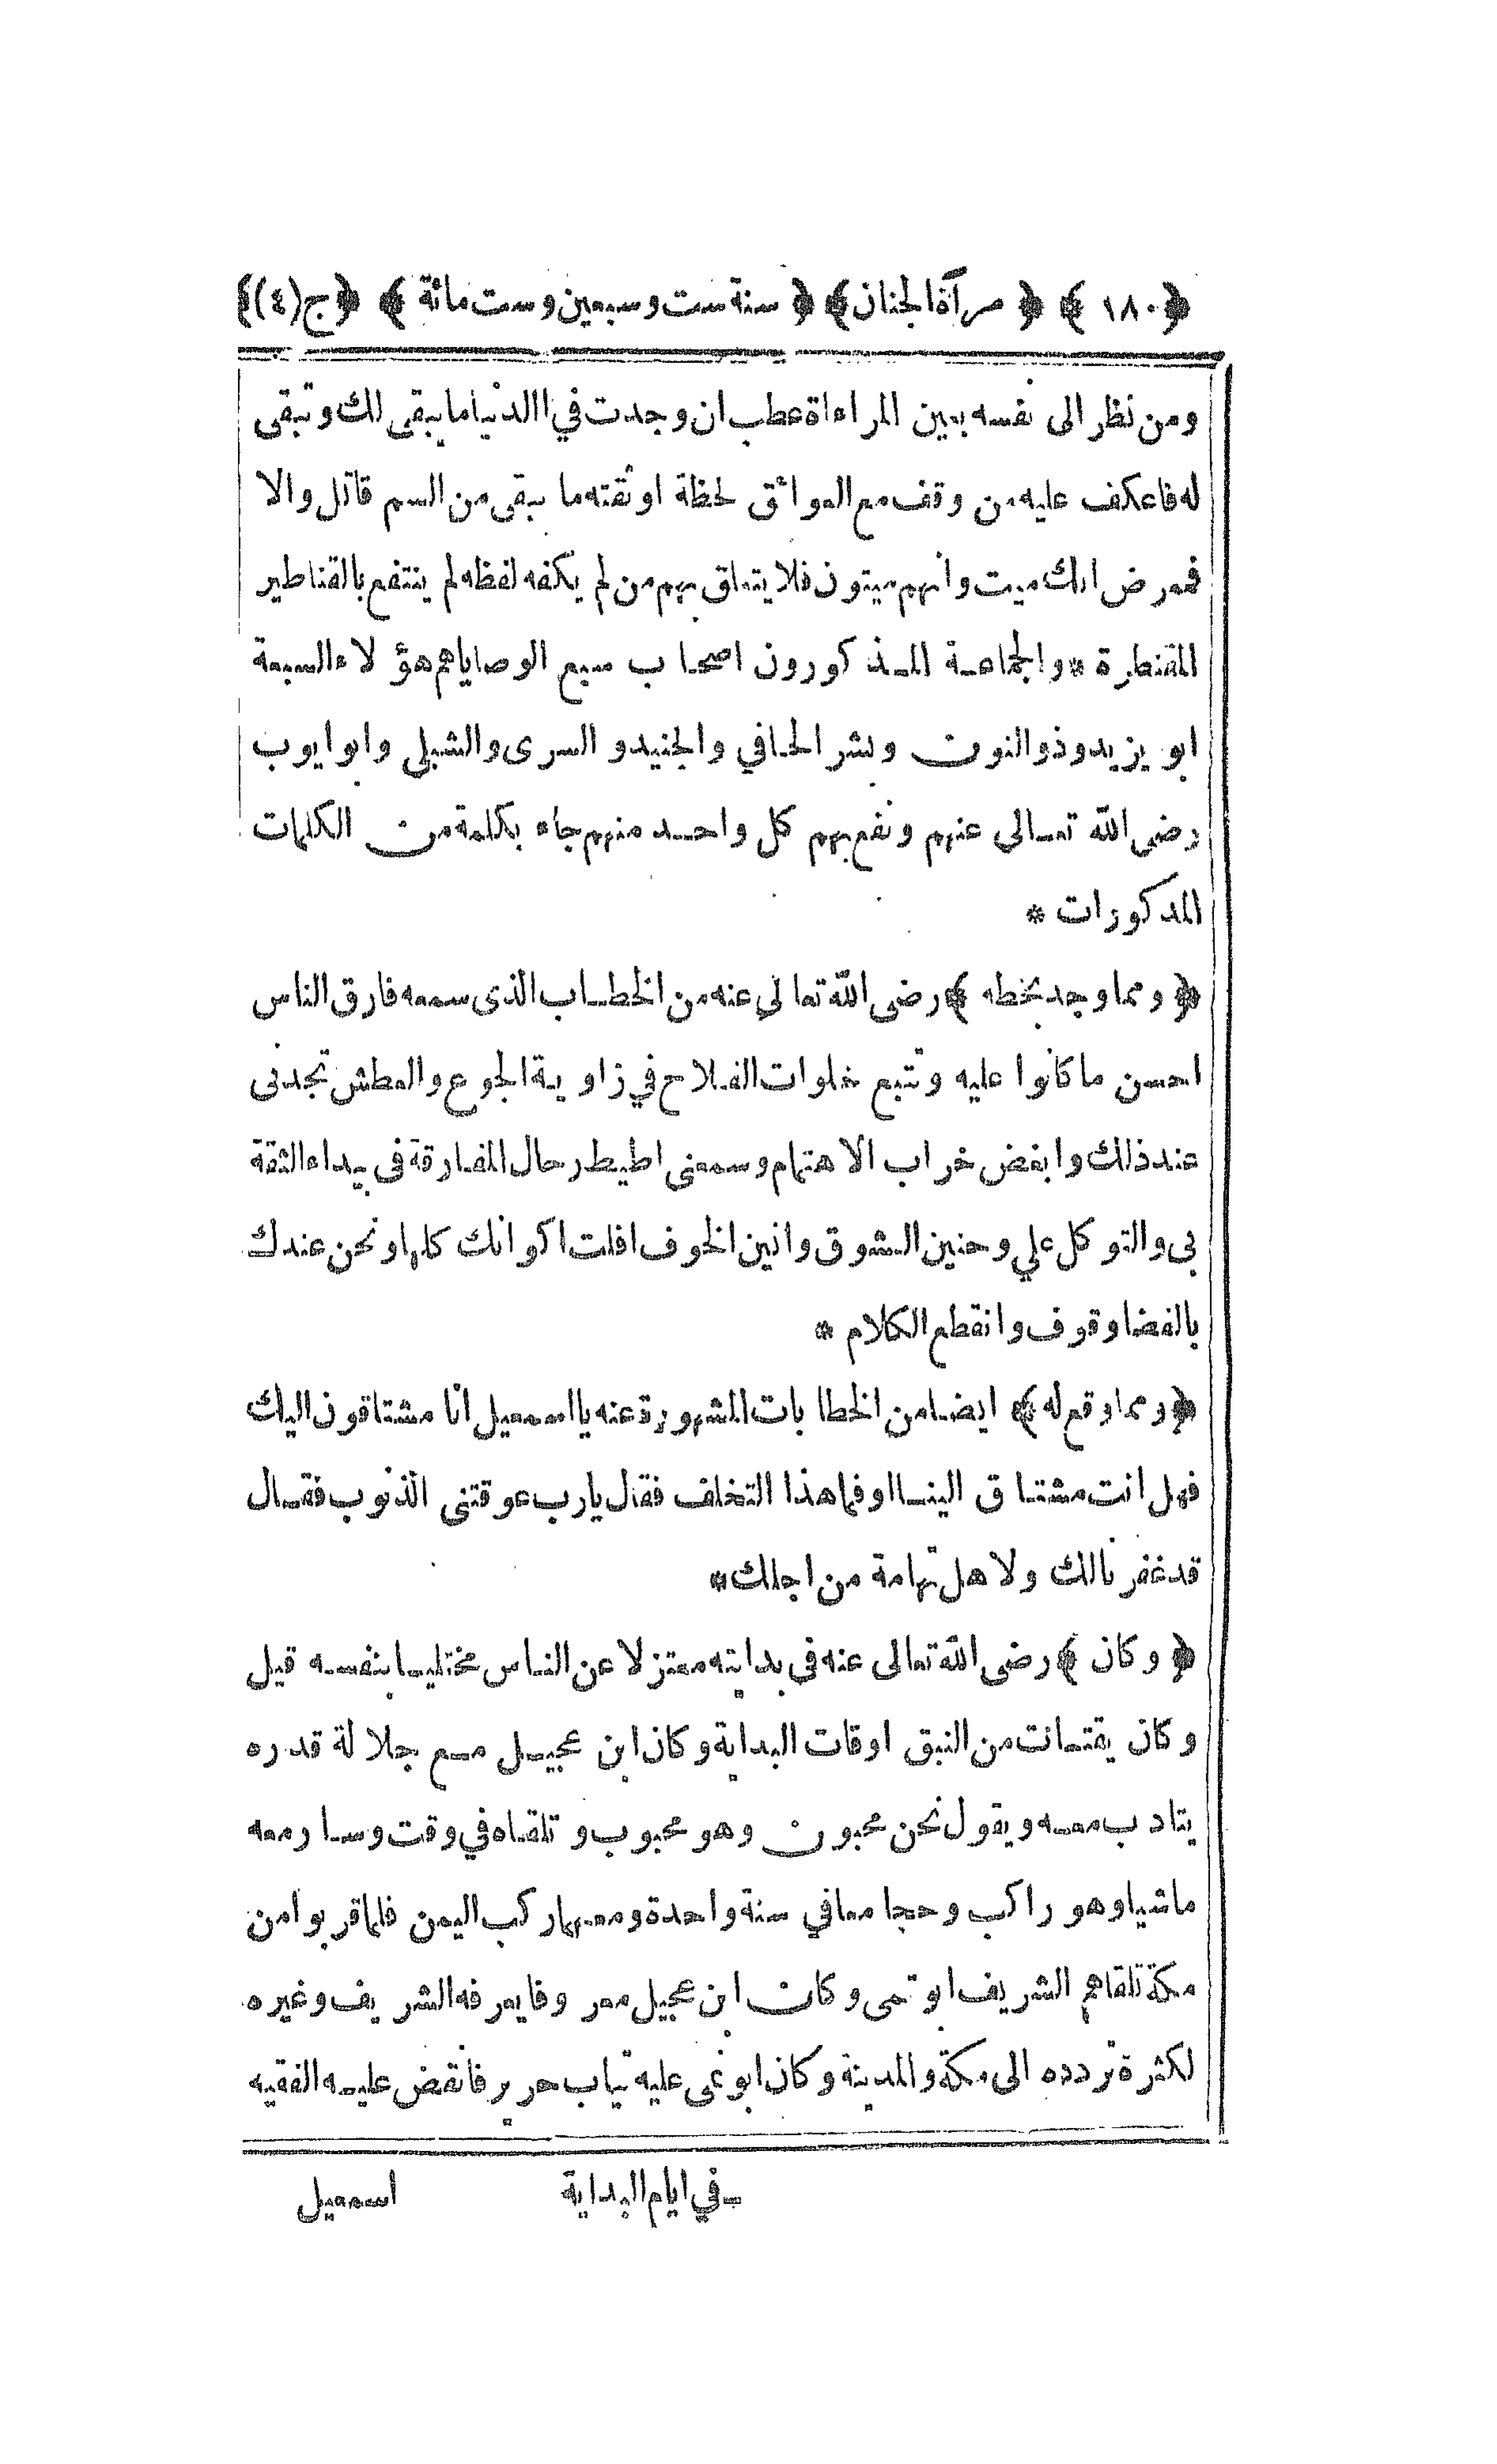 ﴿١٨٠﴾ ﴿مرآة الجنان﴾ ﴿سنة ست وسبعين وست مائة﴾ ﴿ج(٤)﴾
ومن نظر الى نفسه بعين المراءاة عطب ان وجدت في الدنيا ما يبقى لك وتبقى
له فاعكف عليه من وقف مع العوائق لحظة اوثقته ما بقى من السم قاتل والا
فمرض انك ميت وانهم ميتون فلا يتعلق بهم من لم يكفه لفظه لم ينتفع بالقناطير
المقنطرة * والجماعة المذكورون اصحاب سبع الوصايا هم هؤلاء السبعة
ابو يزيد وذو النون وبشر الحافي والجنيد و السرى والشبلي وابو ايوب
رضى الله تعالى عنهم ونفع بهم كل واحد منهم جاء بكلمة من الكلمات
المذكورات *
﴿ومما وجد بخطه﴾ رضى الله تعالى عنه من الخطاب الذى سمعه فارق الناس
احسن ما كانوا عليه وتتبع خلوات الفلاح في زاوية الجوع والعطش تجدنى
عند ذلك وابغض خراب الاهتمام وسمعنى اطيط رحال المفارقة فى بيداء الثقة
بى والتوكل علي وحنين الشوق وانين الخوف افلت اكوانك كلها ونحن عندك
بالفضا وقوف وانقطع الكلام *
﴿ومما وقع له﴾ ايضا من الخطابات المشهورة عنه يا اسمعيل انا مشتاقون اليك
فهل انت مشتاق الينا او فما هذا التخلف فقال يارب عوقتنى الذنوب فقال
قد غفرنا لك ولاهل تهامة من اجلك *
﴿وكان﴾ رضى الله تعالى عنه فى بدايته معتزلا عن الناس مختليا بنفسه قيل
وكان يقتات من النبق اوقات البداية وكان ابن عجيل مع جلالة قدره
يتادب معه ويقول نحن محبون وهو محبوب و تلقاه في وقت وسار معه
ماشيا وهو راكب وحجا معا في سنة واحدة ومعهما ركب اليمن فلما قربوا من
مكة تلقاهم الشريف ابو نمى وكان ابن عجيل معروفا يعرفه الشريف وغيره
لكثرة تردده الى مكة والمدينة وكان ابو نمى عليه ثياب حرير فانقض عليه الفقيه
ـ في ايام البداية اسمعيل